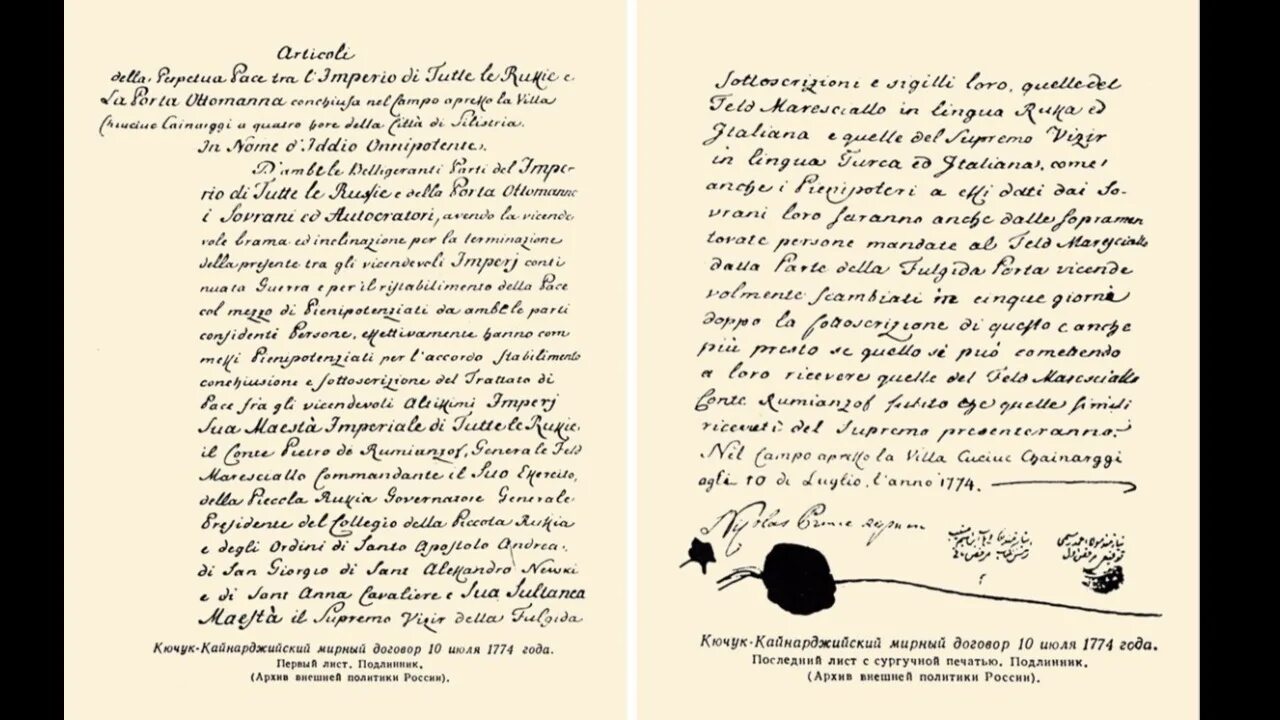 Articoli
della Perpetua Pace tra l'Imperio di Tutte le Russie e
La Porta Ottomanna conchiusa nel Campo apresso la Villa
Chiuciuc Cainarggi a quatro hore della Città di Silistria.
In Nome d'Iddio Onnipotente.
D'ambe le Belligeranti Parti del Impe-
rio di Tutte le Russie e della Porta Ottomanna
i Sovrani ed Autocratori, avendo la vicende
vole brama ed inclinazione per la terminazione
della presente tra gli vicendevoli Imperj conti
nuata Guerra e per il ristabilimento della Pace
col mezzo di Plenipotenziati da ambe le parti
confidenti Persone, effettivamente hanno com
messi Plenipotenziati per l'accordo stabilimento
conchiusione e sottoscrizione del Trattato di
Pace fra gli vicendevoli Altissimi Imperj
Sua Maestà Imperiale di Tutte le Russie,
il Conte Pietro de Rumianzof, Generale Feld
Maresciallo Commandante il Suo Esercito,
della Piccola Russia Governatore Generale
Presidente del Collegio della Piccola Russia
e degli Ordini di Santo Apostolo Andrea,
di San Giorgio di Sant Alessandro Newski
e di Sant Anna Cavaliere e Sua Sultanea
Maestà il Supremo Vizir della Fulgida
Кючук-Кайнарджийский мирный договор 10 июля 1774 года.
Первый лист. Подлинник.
(Архив внешней политики России).
sottoscrizioni e sigilli loro, quelle del
Feld Maresciallo in lingua Russa ed
Italiana e quelle del Supremo Vizir
in lingua Turca ed Italiana, come
anche i Plenipoteri a essi dati dai So-
vrani loro saranno anche dalle sopramen
tovate persone mandate al Feld Maresciallo
dalla Parte della Fulgida Porta vicende
volmente scambiati in cinque giorni
doppo la sottoscrizione di questo e anche
più presto se quello si può comettendo
a loro ricevere quelle del Feld Maresciallo
Conte Rumianzof subito che quelle simili
riceveti del Supremo presenteranno.
Nel Campo apresso la Villa Cuciuc Chainarggi
agli 10 di Luglio, l'anno 1774.
Nicolas Prince
Кючук-Кайнарджийский мирный договор 10 июля 1774 года.
Последний лист с сургучной печатью. Подлинник.
(Архив внешней политики России).